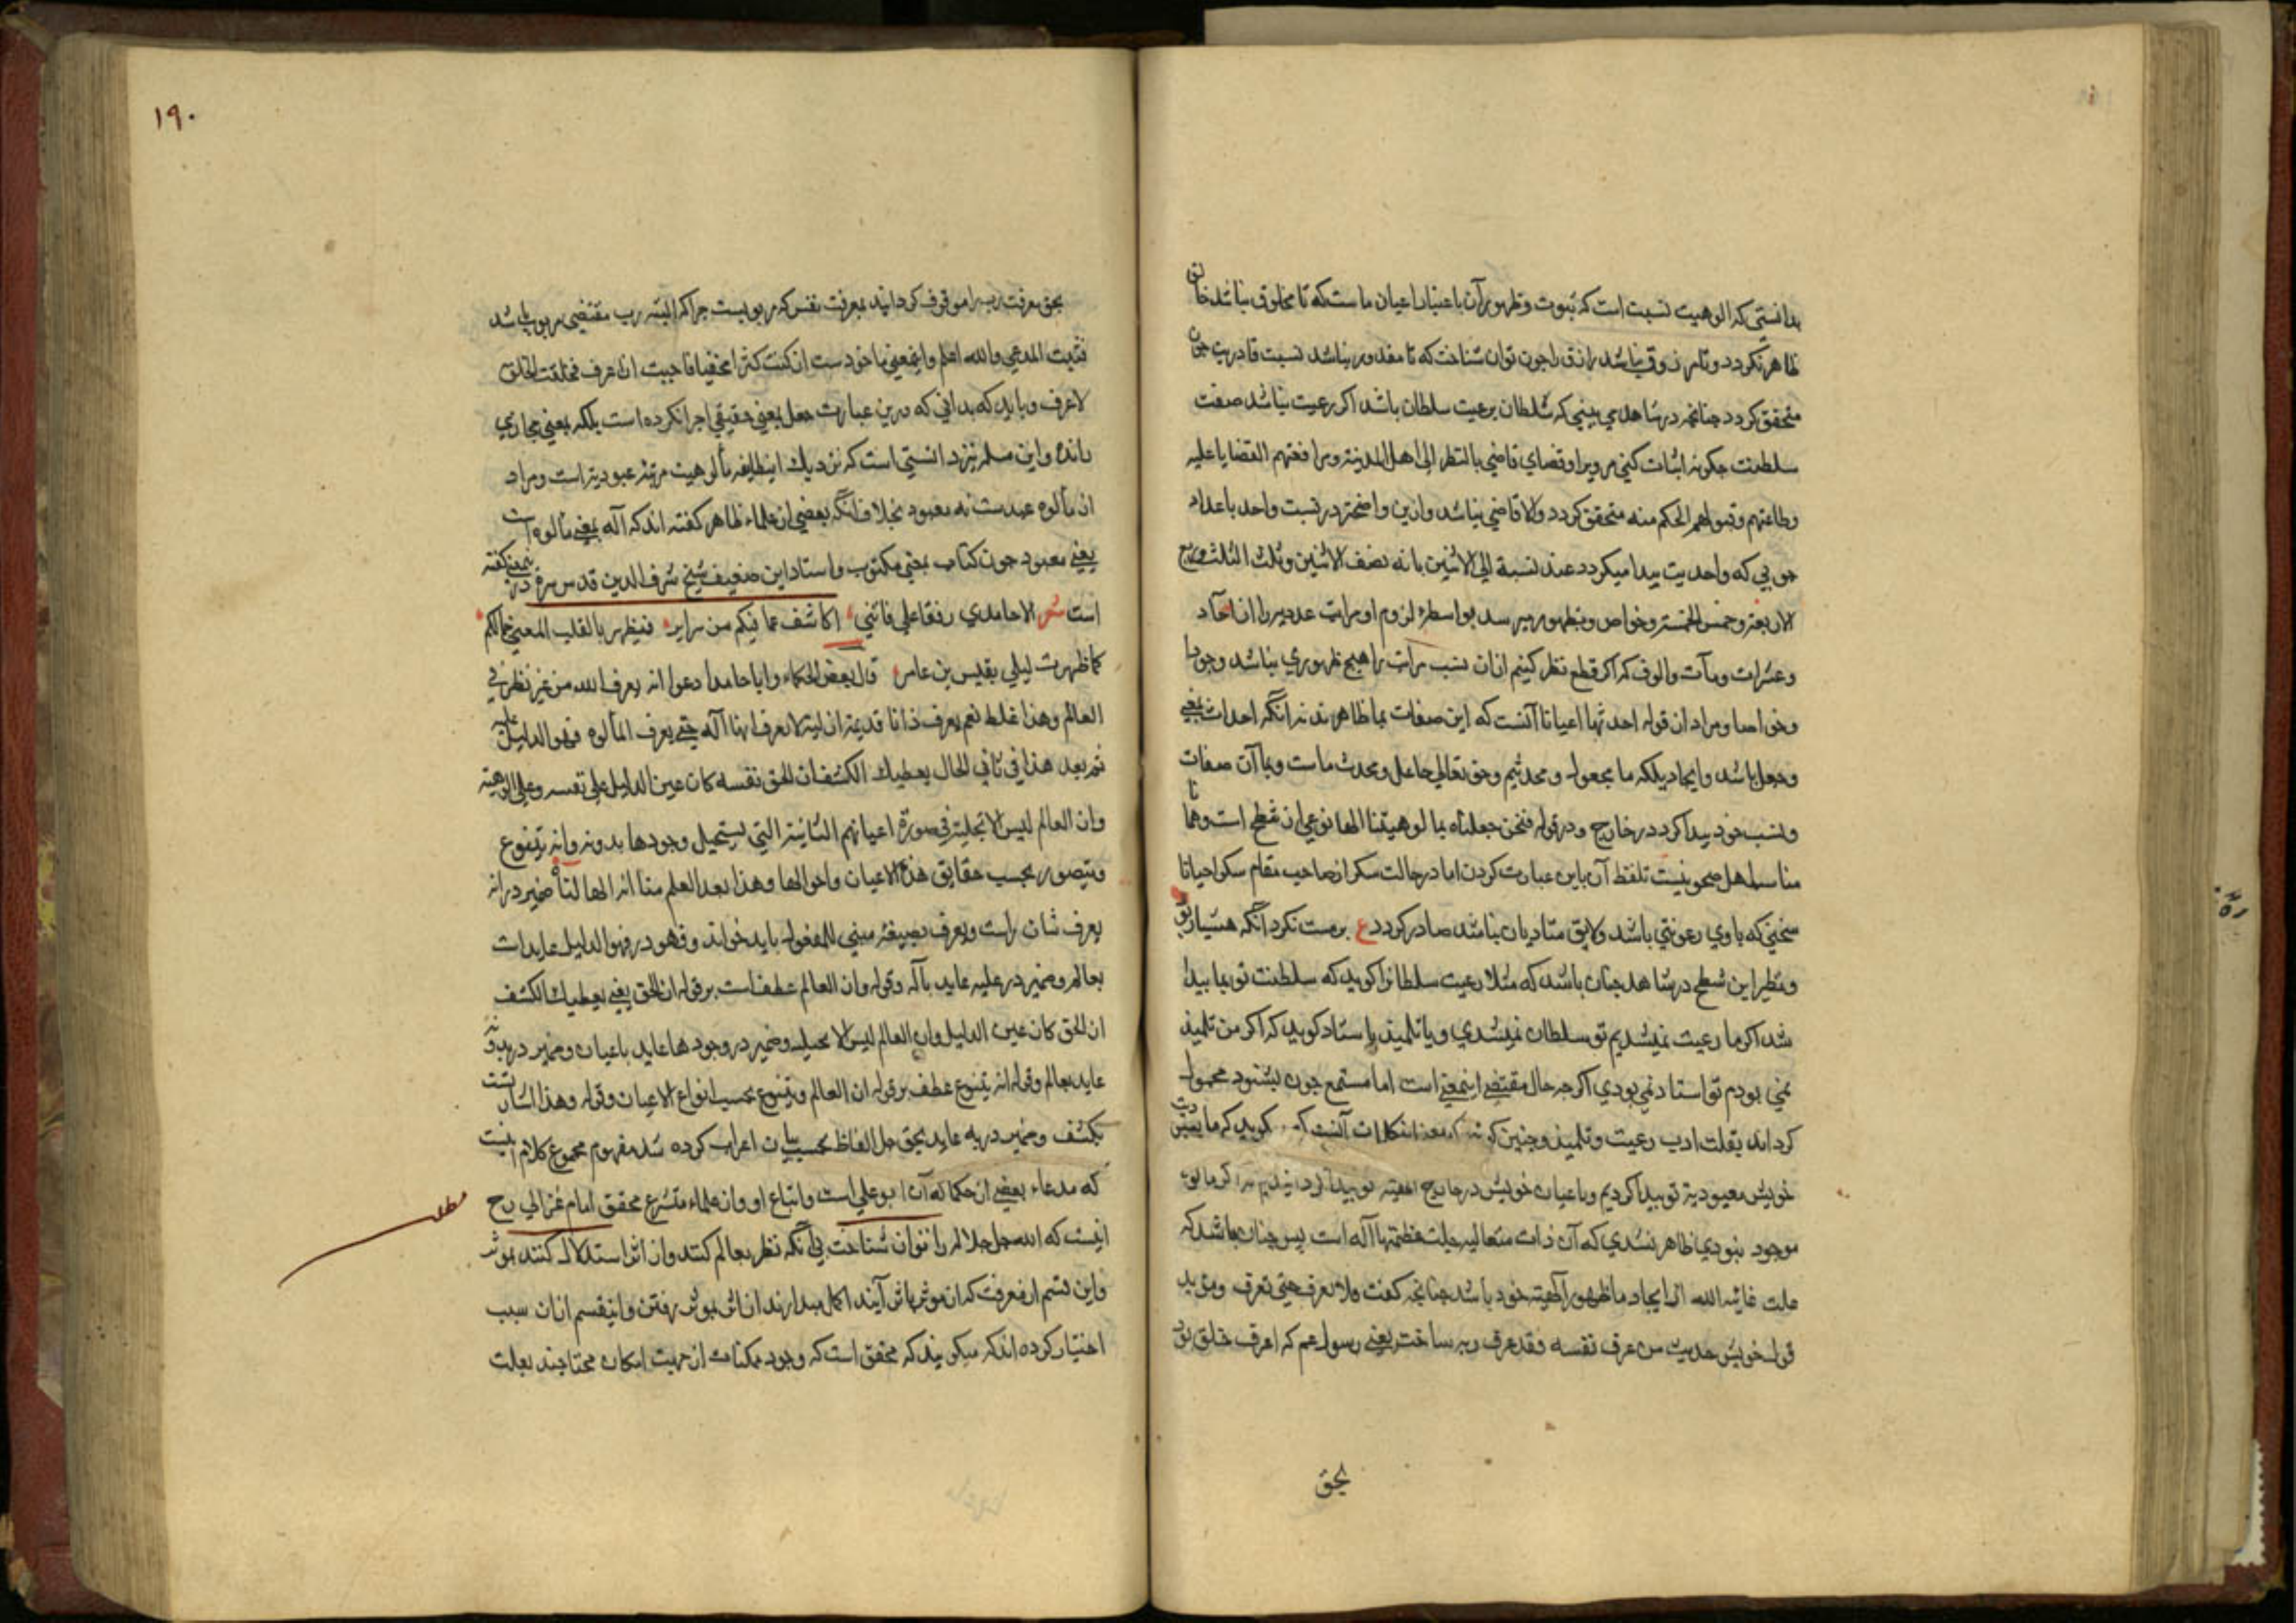 بدانستی که الوهیت نسبت است که ثبوت و ظهور آن باعتبار اعیان ماست که تا مخلوق نباشد خالق
ظاهر نکردد و تا مرزوقی نباشد رازق را چون توان شناخت که تا مقدور نباشد نسبت قادریت چون
متحقق کردد چنانچه در شاهد می بینی که سلطان برعیت سلطان باشد اکر رعیت نباشد صفت
سلطنت چکونه اثبات کنی مر ویرا و قضای قاضی بالنظر الی اهل المدینة و مرافعتهم القضایا علیه
و طاعتهم و قبولهم الحکم منه متحقق کردد والا قاضی نباشد و ازین واضحتر در نسبت واحد باعداد
چون بی که واحدیت پیدا میکردد عند نسبة الی الاثنین بانه نصف الاثنین وثلث الثلث وربع
الاربعة وخمس الخمسة وخواص وبظهور میرسد بواسطهٔ لزوم او مراتب عددیرا از آحاد
وعشرات ومآت والوف که اکر قطع نظر کنیم ازان نسب مراتب را هیچ ظهوری نباشد وجودا
وخواصا ومراد از قوله احدثها اعیاننا آنست که این صفات بما ظاهر شدند نه آنکه احداث بمعنی
وجعل باشد وایجاد بلکه ما مجعول ومحدثیم وحق تعالی جاعل ومحدث ماست وبما آن صفات
ونسب خود پیدا کردد در خارج ودر قوله فنحن جعلناه بمألوهیتنا الها نوعی از شطح است وهمانا
مناسب اهل صحو نیست تلفظ آن باین عبارت کردن اما در حالت سکر از صاحب مقام سکر احیانا
سخنی که با وی رعونتی باشد ولایق متادبان نباشد صادر کردد ع برمست نکرد آنکه هشیار بود
ونظیر این شطح در شاهد چنان باشد که مثلا رعیت سلطانرا کوید که سلطنت تو بما پیدا
شد اکر ما رعیت نمیشدیم تو سلطان نمیشدی ویا تلمیذ باستاد کوید که اکر من تلمیذ
نمی بودم تو استاد نمی بودی اکرچه حال مقتضی اینمعنی است اما مستمع چون بشنود محمول
کرداند بقلت ادب رعیت وتلمیذ وچنین کلمات آنست که کوید که ما بعبودیت
خویش معبودیة تو پیدا کردیم وباعیان خویش در خارج تو پیدا کردانیدیم اکر ما بوء
موجود نبودی ظاهر نشدی که آن ذات متعالیه جلت عظمتها آله است پس چنان باشد که
علت غائیه الله از ایجاد ما ظهور آلهیته خود باشد چنانچه کفت ولا نعرف حتی تعرف ومؤید
قول خویش حدیث من عرف نفسه فقد عرف ربه ساخت یعنی رسول عم که اعرف خلق بود
بحق
١٩٠
بحق معرفت رب را موقوف کردانید بمعرفت نفس که مربوبست چرا که البته رب مقتضی مربوب باشد
فثبت المدعی والله اعلم واینمعنی ماخوذست از کنت کنزا مخفیا فاحببت ان اعرف فخلقت الخلق
لاعرف وباید که بدانی که درین عبارت جعل بمعنی حقیقی اجرا نکرده است بلکه بمعنی مجازی
رانده واین مسلم نیز دانستی است که نزدیک اینطایفه مألوهیت مرتبهٔ عبودیة است ومراد
از مألوه عبدست نه معبود بخلاف آنکه بعضی از علماء ظاهر کفته اند که آله بمعنی مألوه است
یعنی معبود چون کتاب بمعنی مکتوب واستاد این ضعیف شیخ شرف الدین قدس سره درین معنی کفته
است شعر الا حامدی رفقا علی فاننی اکاشف عما فیکم من سرایر فیظهر بالقلب المعنی جمالکم
کما ظهرت لیلی بقیس بن عامر قال بعض الحکماء وابا حامد ادعوا انه یعرف الله من غیر نظر فی
العالم وهذا غلط نعم یعرف ذاتا قدیمة ازلیة لا یعرف انها آله حتی یعرف المألوه فهو الدلیل علیه
ثم بعد هذا فی ثانی الحال یعطیك الکشف ان الحق نفسه کان عین الدلیل علی نفسه وعلی الوهیته
وان العالم لیس الا تجلیه فی صورة اعیانهم الثابتة التی یستحیل وجودها بدونه وانه یتنوع
ویتصور بحسب حقایق هذه الاعیان واحوالها وهذا بعد العلم منا انه اله لنا ضمیر در انه
یعرف شان راست ویعرف بصیغهٔ مبنی للمفعول باید خواند وفهو در فهو الدلیل عایدات
بعالم وضمیر در علیه عاید بآله وقوله وان العالم عطف است بر قوله ان الحق یعنی یعطیك الکشف
ان الحق کان عین الدلیل وان العالم لیس الا تجلیه وضمیر در وجودها عاید باعیان وضمیر در بدونه
عاید بعالم وقوله انه یتنوع عطف بر قوله ان العالم ویتنوع بحسب انواع الاعیان وقوله وهذا اشارتست
بکشف وضمیر در به عاید بحق حل الفاظ بحسب بیان اعراب کرده شد مفهوم مجموع کلام اینست
که مدعاء بعضی از حکما که آن ابو علی است واتباع او واز علماء متشرع محقق امام غزالی رح
اینست که الله جل جلاله را توان شناخت بی آنکه نظر بعالم کنند واز اثر استدلال کنند بموثر
واین قسم از معرفت که از موثر باثر آیند اکمل میدارند از اثر بموثر رفتن واینقسم ازان سبب
اختیار کرده اند که میکویند که محقق است که وجود ممکنات از جهت امکان محتاجند بعلت
مطلب